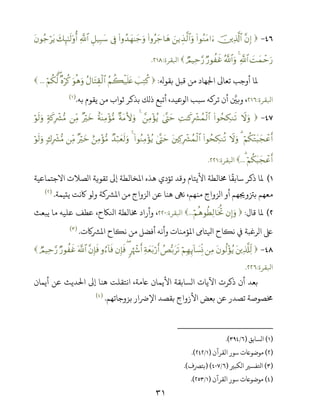 ٤٦- ﴿ إِنَّ ٱلَّذِينَ ءَامَنُواْ وَٱلَّذِينَ هَاجَرُواْ وَجَٰهَدُواْ فِى سَبِيلِ ٱللَّهِ أُوْلَٰٓئِكَ يَرْجُونَ
رَحْمَتَ ٱللَّهِ ۚ وَٱللَّهُ غَفُورٌ رَّحِيمٌ ﴾ البقرة:٢١٨.
لما أوجب تعالى الجهاد من قبل بقوله: ﴿ كُتِبَ عَلَيْكُمُ ٱلْقِتَالُ وَهُوَ كُرْهٌ لَّكُمْ ... ﴾
البقرة:٢١٦ وبيَّن أن تركه سبب الوعيد، أتبع ذلك بذكر ثواب من يقوم به.(١)
٤٧- ﴿ وَلَا تَنكِحُواْ ٱلْمُشْرِكَٰتِ حَتَّىٰ يُؤْمِنَّ ۚ وَلَأَمَةٌ مُّؤْمِنَةٌ خَيْرٌ مِّن مُّشْرِكَةٍ وَلَوْ
أَعْجَبَتْكُمْ ۗ وَلَا تُنكِحُواْ ٱلْمُشْرِكِينَ حَتَّىٰ يُؤْمِنُواْ ۚ وَلَعَبْدٌ مُّؤْمِنٌ خَيْرٌ مِّن مُّشْرِكٍ وَلَوْ
أَعْجَبَكُمْ ... ﴾ البقرة:٢٢١.
١) لما ذكر سابقًا مخالطة الأيتام وقد تؤدي هذه المخالطة إلى تقوية الصلات الاجتماعية
معهم بتزويجهم أو الزواج منهم، نهى هنا عن الزواج من المشركة ولو كانت يتيمة.(٢)
٢) لما قال: ﴿ وَإِن تُخَالِطُوهُمْ...﴾ البقرة:٢٢٠، وأراد مخالطة النكاح، عطف عليه ما يبعث
على الرغبة في نكاح اليتامى المؤمنات وأنه أفضل من نكاح المشركات.(٣)
٤٨- ﴿ لِّلَّذِينَ يُؤْلُونَ مِن نِّسَآئِهِمْ تَرَبُّصُ أَرْبَعَةِ أَشْهُرٍ ۖ فَإِن فَآءُو فَإِنَّ ٱللَّهَ غَفُورٌ رَّحِيمٌ ﴾
البقرة:٢٢٦.
بعد أن ذكرت الآيات السابقة الأيمان عامة، انتقلت هنا إلى الحديث عن أيمان
مخصوصة تصدر عن بعض الأزواج بقصد الإضرار بزوجاتهم.(٤)
(١) السابق (٣٩٤/٦).
(٢) موضوعات سور القرآن (٢٤٢/١).
(٣) التفسير الكبير (٤٠٧/٦) (بتصرف).
(٤) موضوعات سور القرآن (٢٥٣/١).
٣١